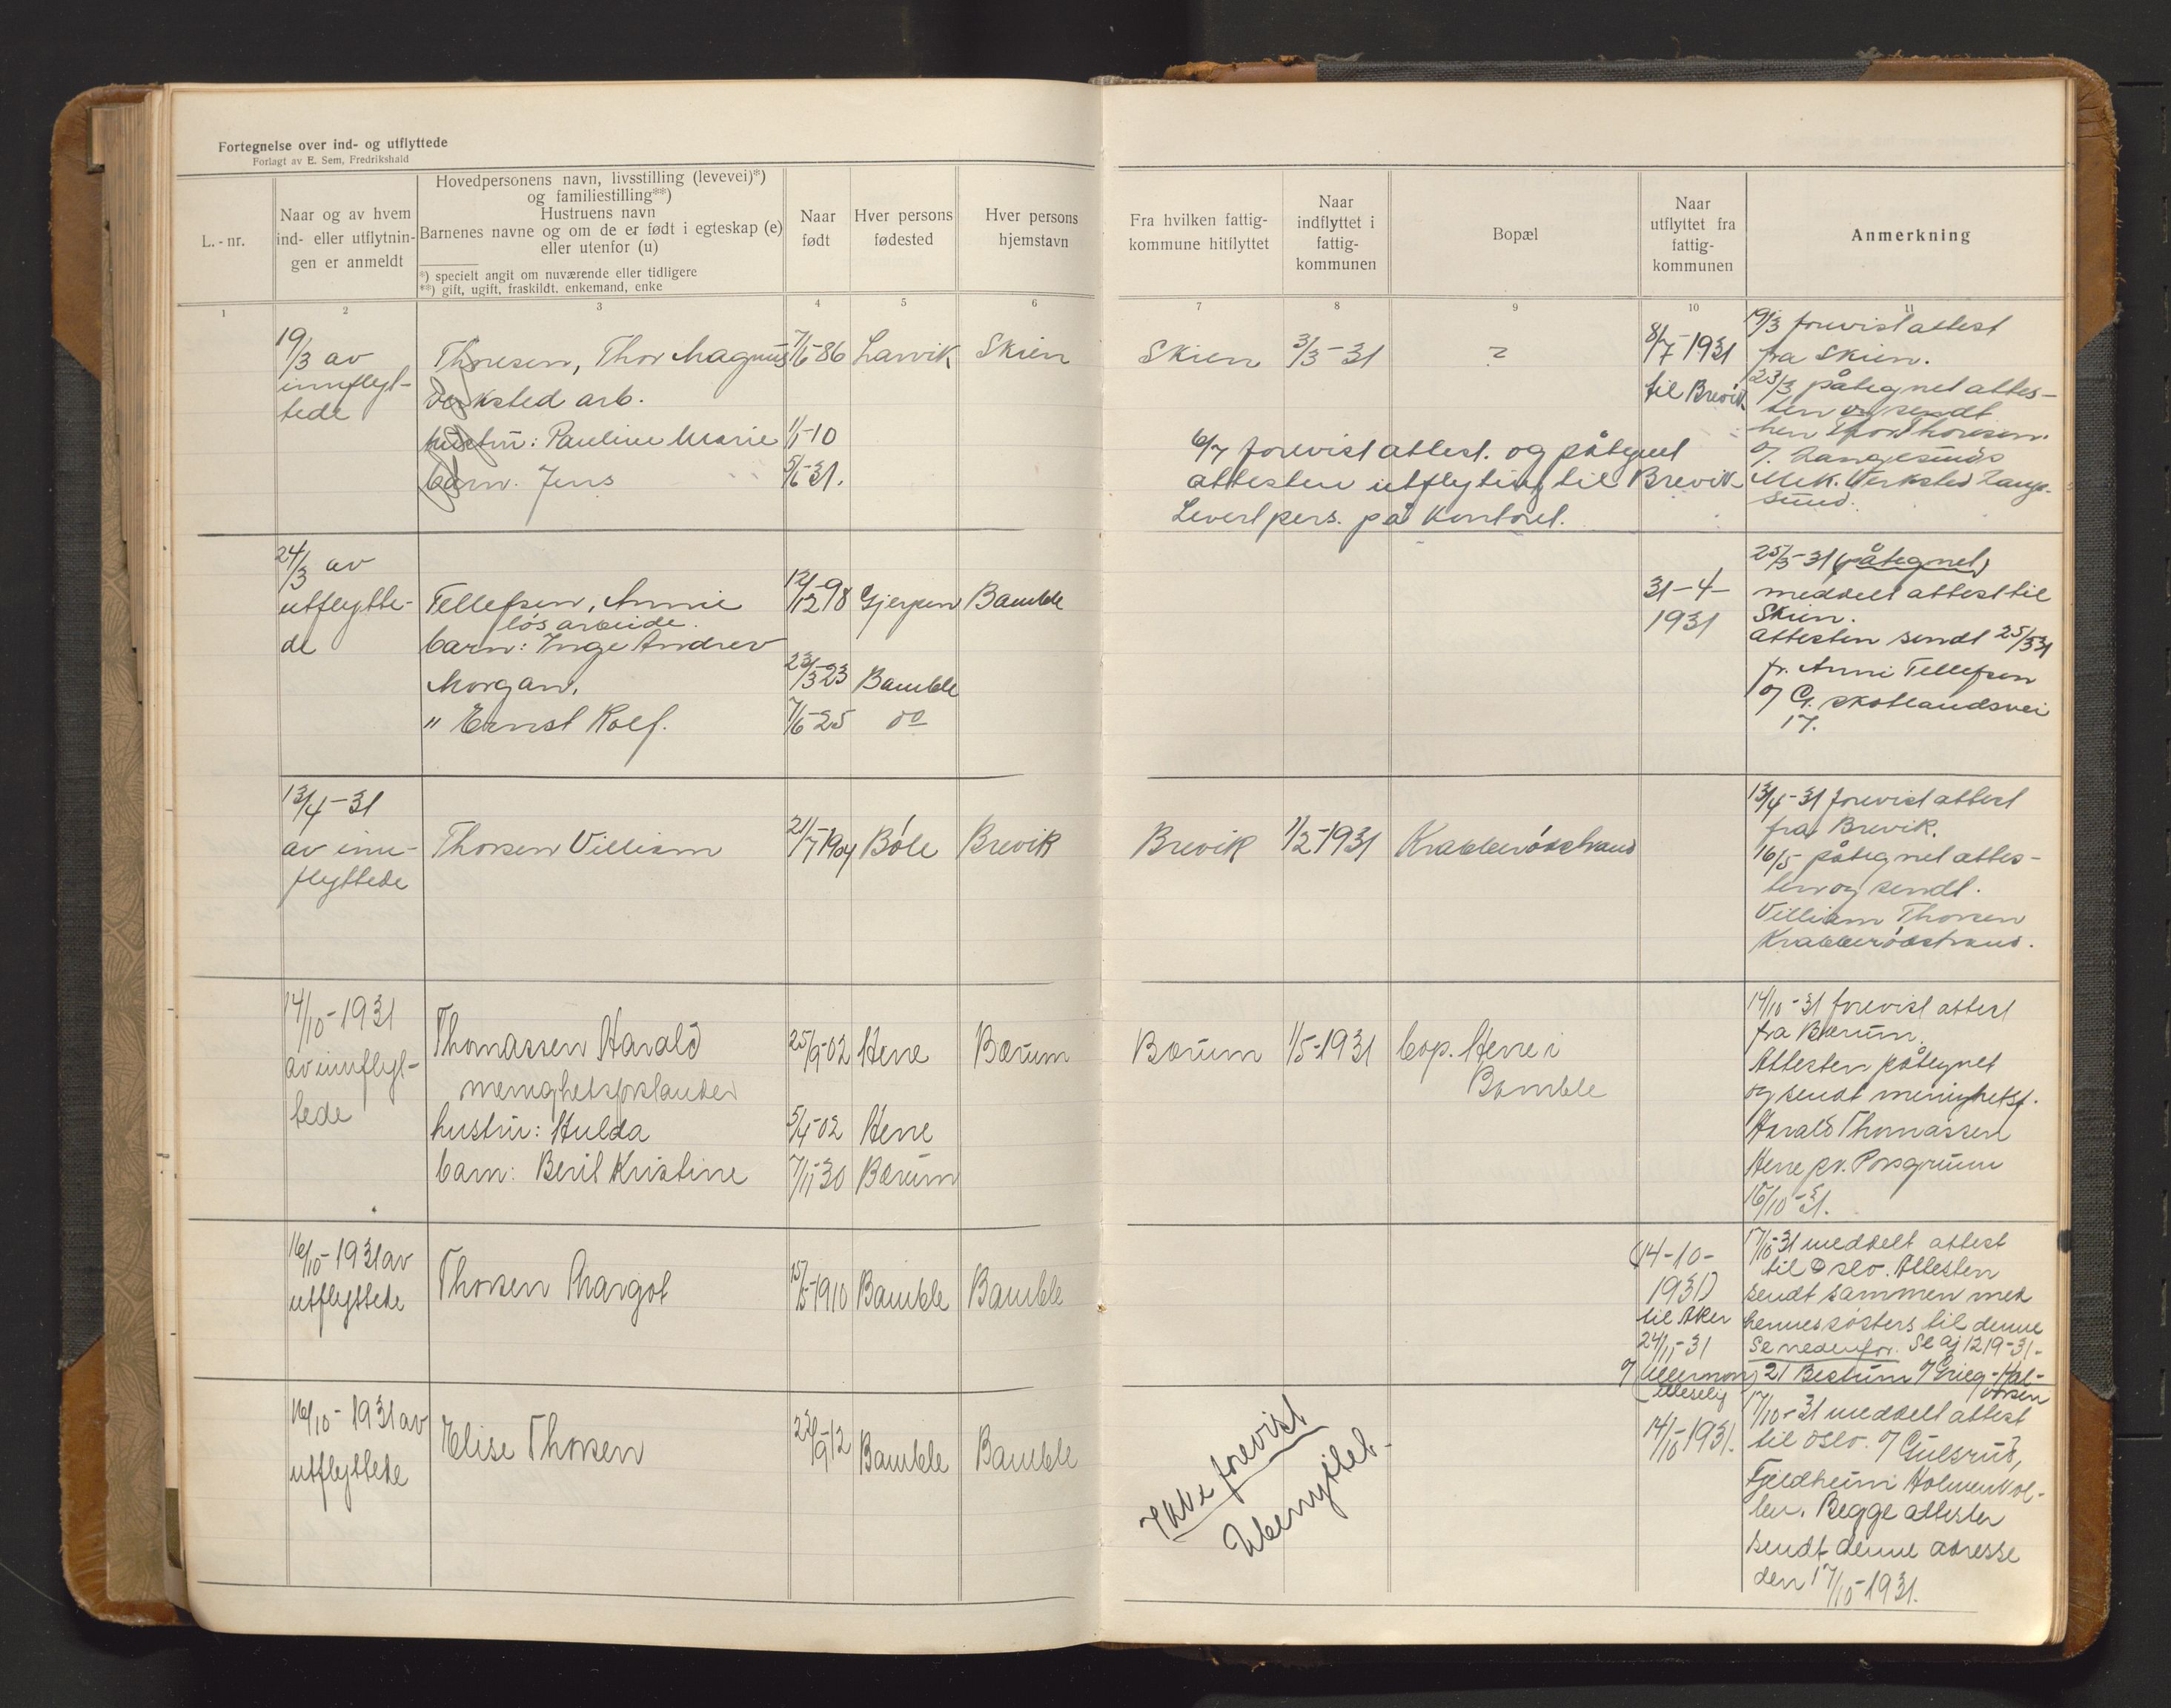 Fortegnelse over ind- og utflyttede
Forlagt av E. Sem, Fredrikshald
L.-nr.
Naar og av hvem
ind- eller utflytnin-
gen er anmeldt
Hovedpersonens navn, livsstilling (levevei)*)
og familiestilling**)
Hustruens navn
Barnenes navne og om de er født i egteskap (e)
eller utenfor (u)
*) specielt angit om nuværende eller tidligere
**) gift, ugift, fraskildt. enkemand, enke
Naar
født
Hver persons
fødested
Hver persons
hjemstavn
Fra hvilken fattig-
kommune hitflyttet
Naar
indflyttet i
fattig-
kommunen
Bopæl
Naar
utflyttet fra
fattig-
kommunen
Anmerkning
1 2 3 4 5 6 7 8 9 10 11
19/3 av
innflyt-
tede
Thoresen, Thor Magnus 7/5-86 Larvik Skien
Verksted arb.
hustru: Pauline Marie 1/1-10
barn. Jens 5/6-31.
Skien 3/3-31 ?
8/7-1931
til Brevik
6/7 forevist attest. og påtegnet
attesten utflyting til Brevik
Levert pers. på kontoret.
19/3 forevist attest
fra Skien.
23/3 påtegnet attes-
ten og sendt
herr Thor Thoresen.
Langesunds
Mek. Verksted Lange-
sund.
24/3 av
utflytte-
de
Tellefsen, Annie 12/12-98 Gjerpen Bamble
løsarbeide.
barn: Inge Andrev
Morgan. 23/3-23 Bamble
" Ernst Rolf. 7/6-25 do
31-4-
1931
25/3-31 (påtegnet)
meddelt attest til
Skien.
Attesten sendt 25/3 31
fr. Anni Tellefsen
G. Skotlandsvei
17.
13/4-31
av inn-
flyttede
Thorsen Villiam 21/7-1904 Bøle Brevik
Brevik 1/2-1931 Krabberødstrand
13/4-31 forevist attest
fra Brevik.
16/5 påtegnet attes-
ten og sendt.
Villiam Thorsen
Krabberødstrand.
14/10-1931
av innflyt-
tede
Thomassen Harald 25/9-02 Herre Bærum
menighetsforstander
hustru: Hulda 5/4-02 Herre
barn: Beril Kristine 7/11-30 Bærum
Bærum 1/5-1931 bop. Herre i
Bamble
14/10-31 forevist attest
fra Bærum.
Attesten påtegnet
og sendt menighetsf.
Harald Thomassen
Herre pr. Porsgrunn
15/10-31.
16/10-1931 av
utflyttede
Thorsen Margot 15/5-1910 Bamble Bamble
(14-10-
1931)
til Aker
24/11-31
Ullernvn
17/10-31 meddelt attest
til Oslo. Attesten
sendt sammen med
hennes søsters til denne
Se nedenfor. Se aj 1219-31-
21 Bestum Grieg-Hal-
vorsen
16/10-1931 av
utflyttede
Elise Thorsen 23/9-12 Bamble Bamble
Ikke forevist
Ubenyttet
14/10-1931.
17/10-31 meddelt attest
til Oslo. Gulsrud,
Fjeldheim Holmenkol-
len. Begge attester
sendt denne adresse
den 17/10-1931.